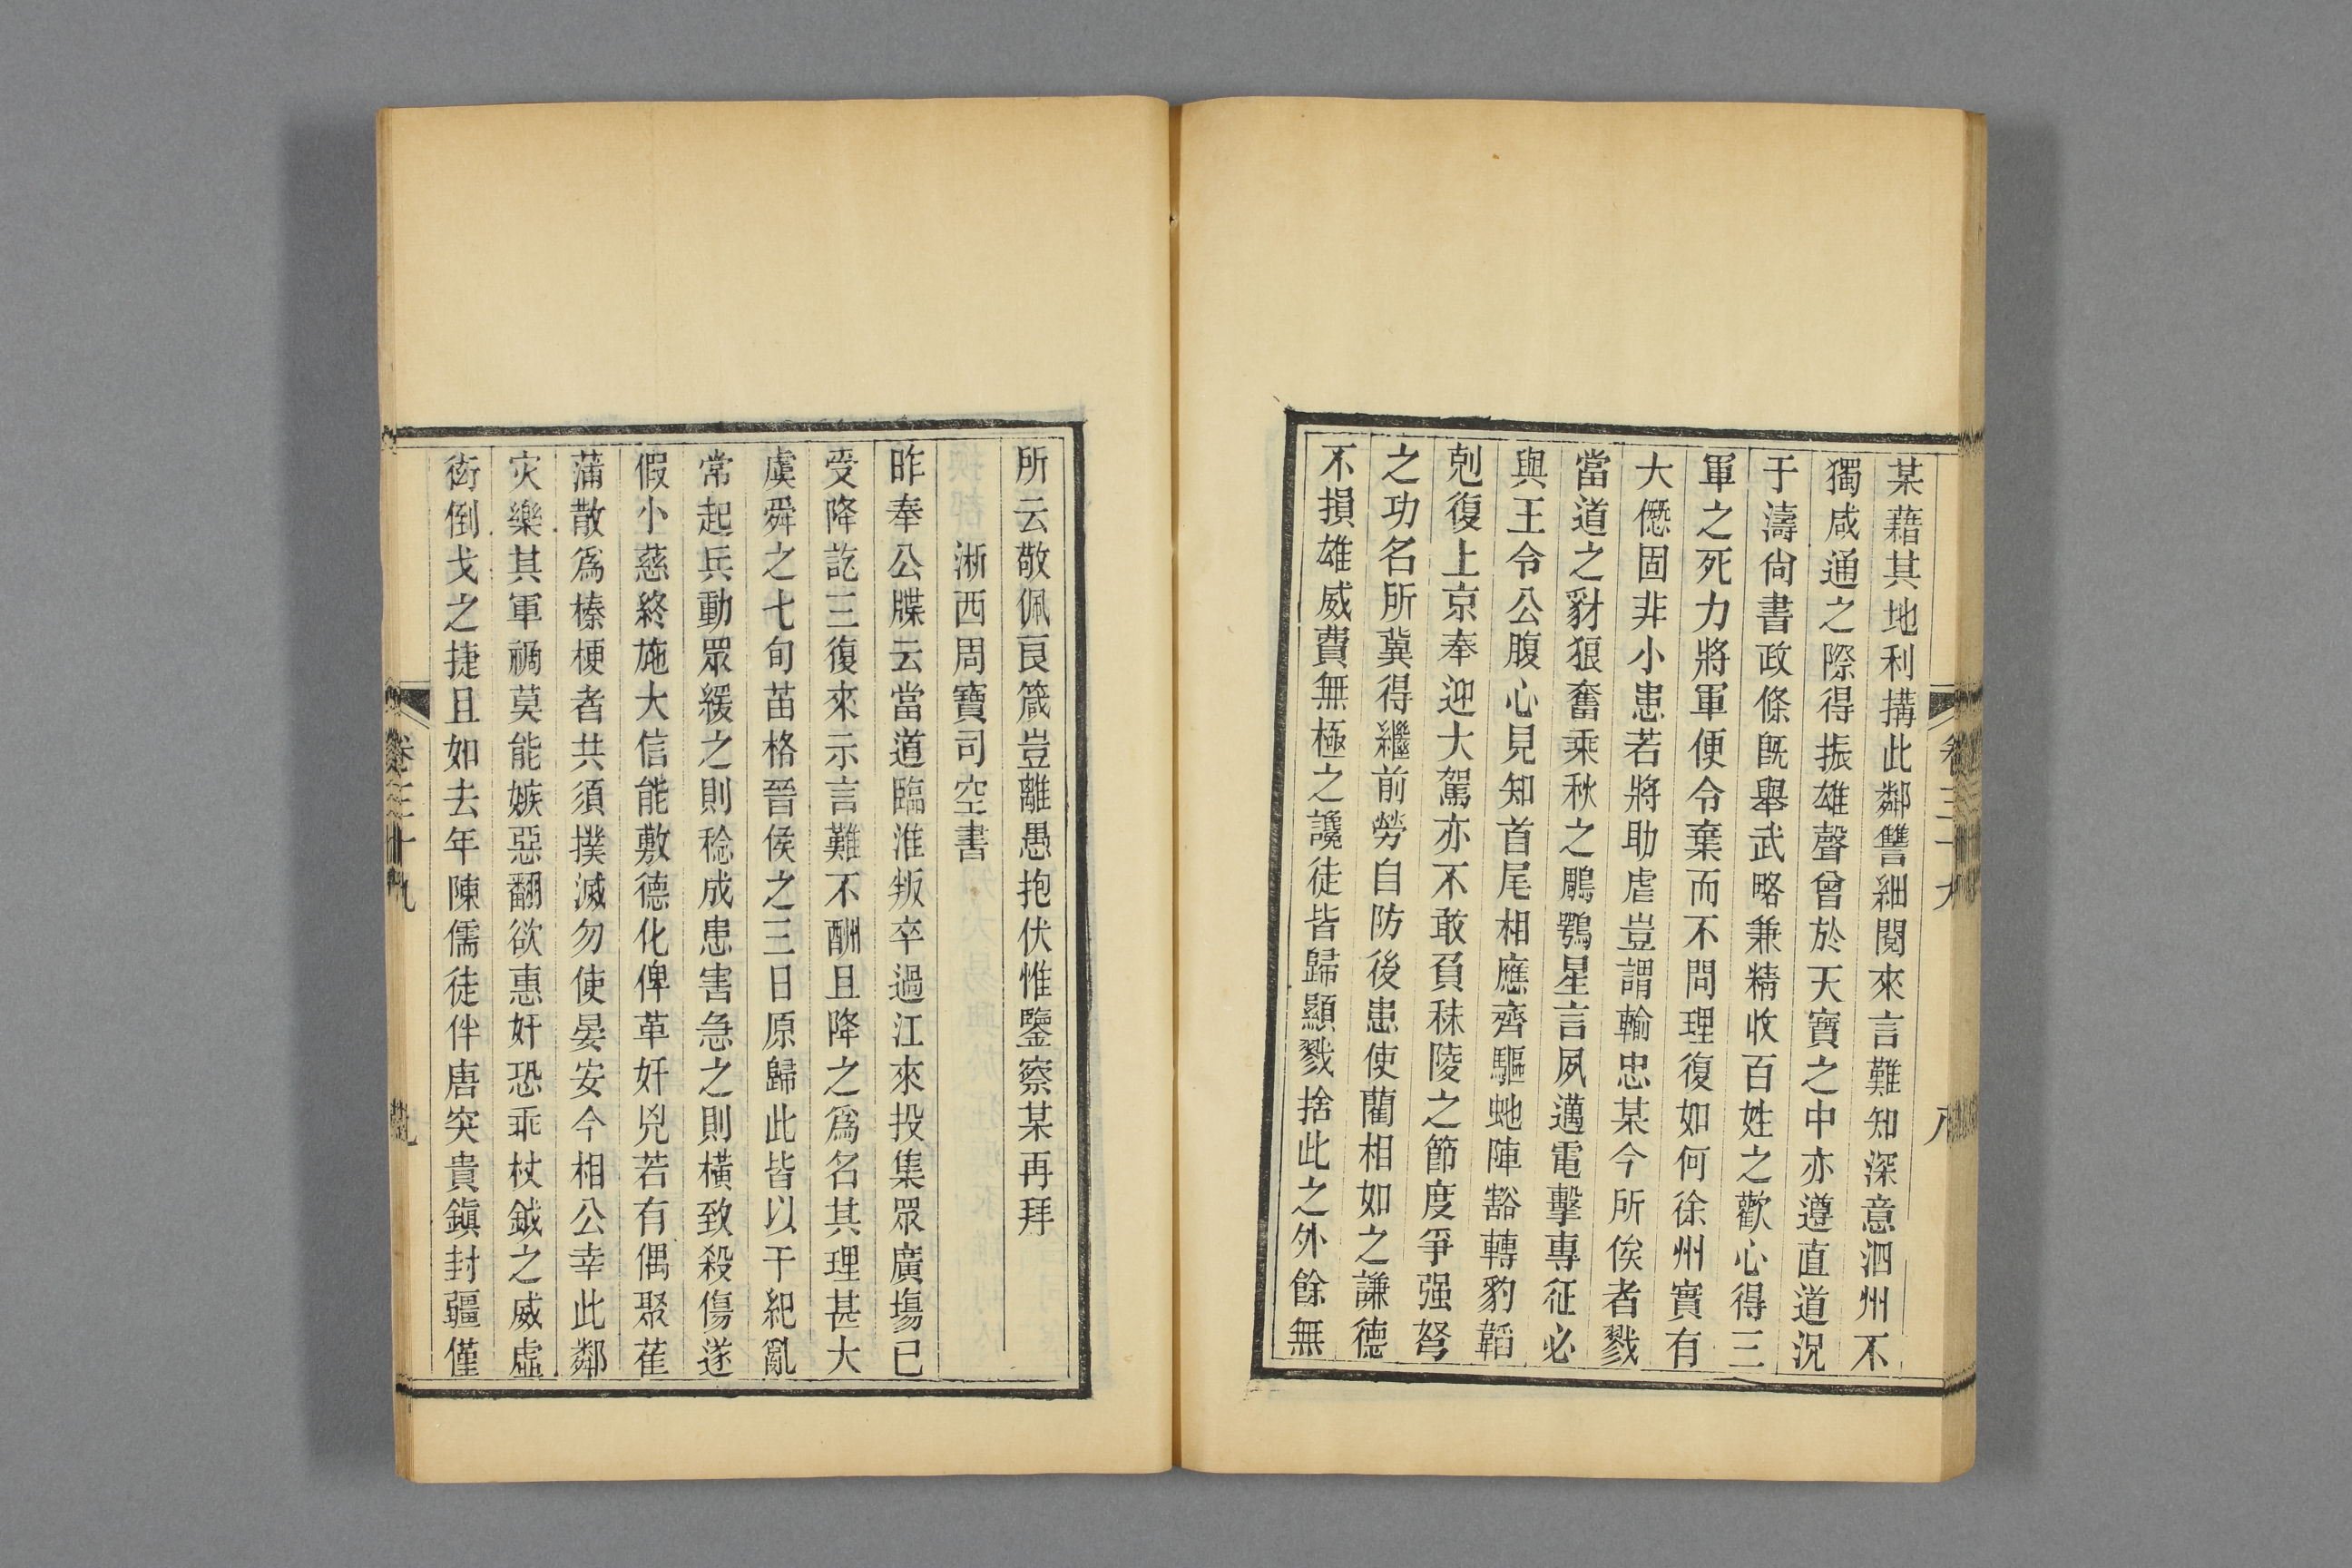 某藉其地利搆此鄰讐細閱來言難知深意泗州不
獨咸通之際得振雄聲曾於天寶之中亦遵直道況
于濤尙書政條旣舉武略兼精收百姓之歡心得三
軍之死力將軍便令棄而不問理復如何徐州實有
大僽固非小患若將助虐豈謂輸忠某今所俟者戮
當道之豺狼奮乘秋之鵰鶚星言夙邁電擊專征必
與王令公腹心見知首尾相應齊驅虵陣豁轉豹韜
剋復上京奉迎大駕亦不敢負秣陵之節度爭强弩
之功名所冀得繼前勞自防後患使藺相如之謙德
不損雄威費無極之讒徒皆歸顯戮捨此之外餘無
所云敬佩良箴豈離愚抱伏惟鑒察某再拜
淅西周寶司空書
昨奉公牒云當道臨淮叛卒過江來投集眾廣塲已
受降訖三復來示言難不酬且降之爲名其理甚大
虞舜之七旬苗格晉侯之三日原歸此皆以干紀亂
常起兵動眾緩之則稔成患害急之則橫致殺傷遂
假小慈終施大信能敷德化俾革奸兇若有偶聚萑
蒲散爲榛梗者共須撲滅勿使晏安今相公幸此鄰
灾樂其軍禍莫能嫉惡翻欲惠奸恐乖杖鉞之威虛
衒倒戈之捷且如去年陳儒徒伴唐突貴鎭封疆僅
卷三十九
九